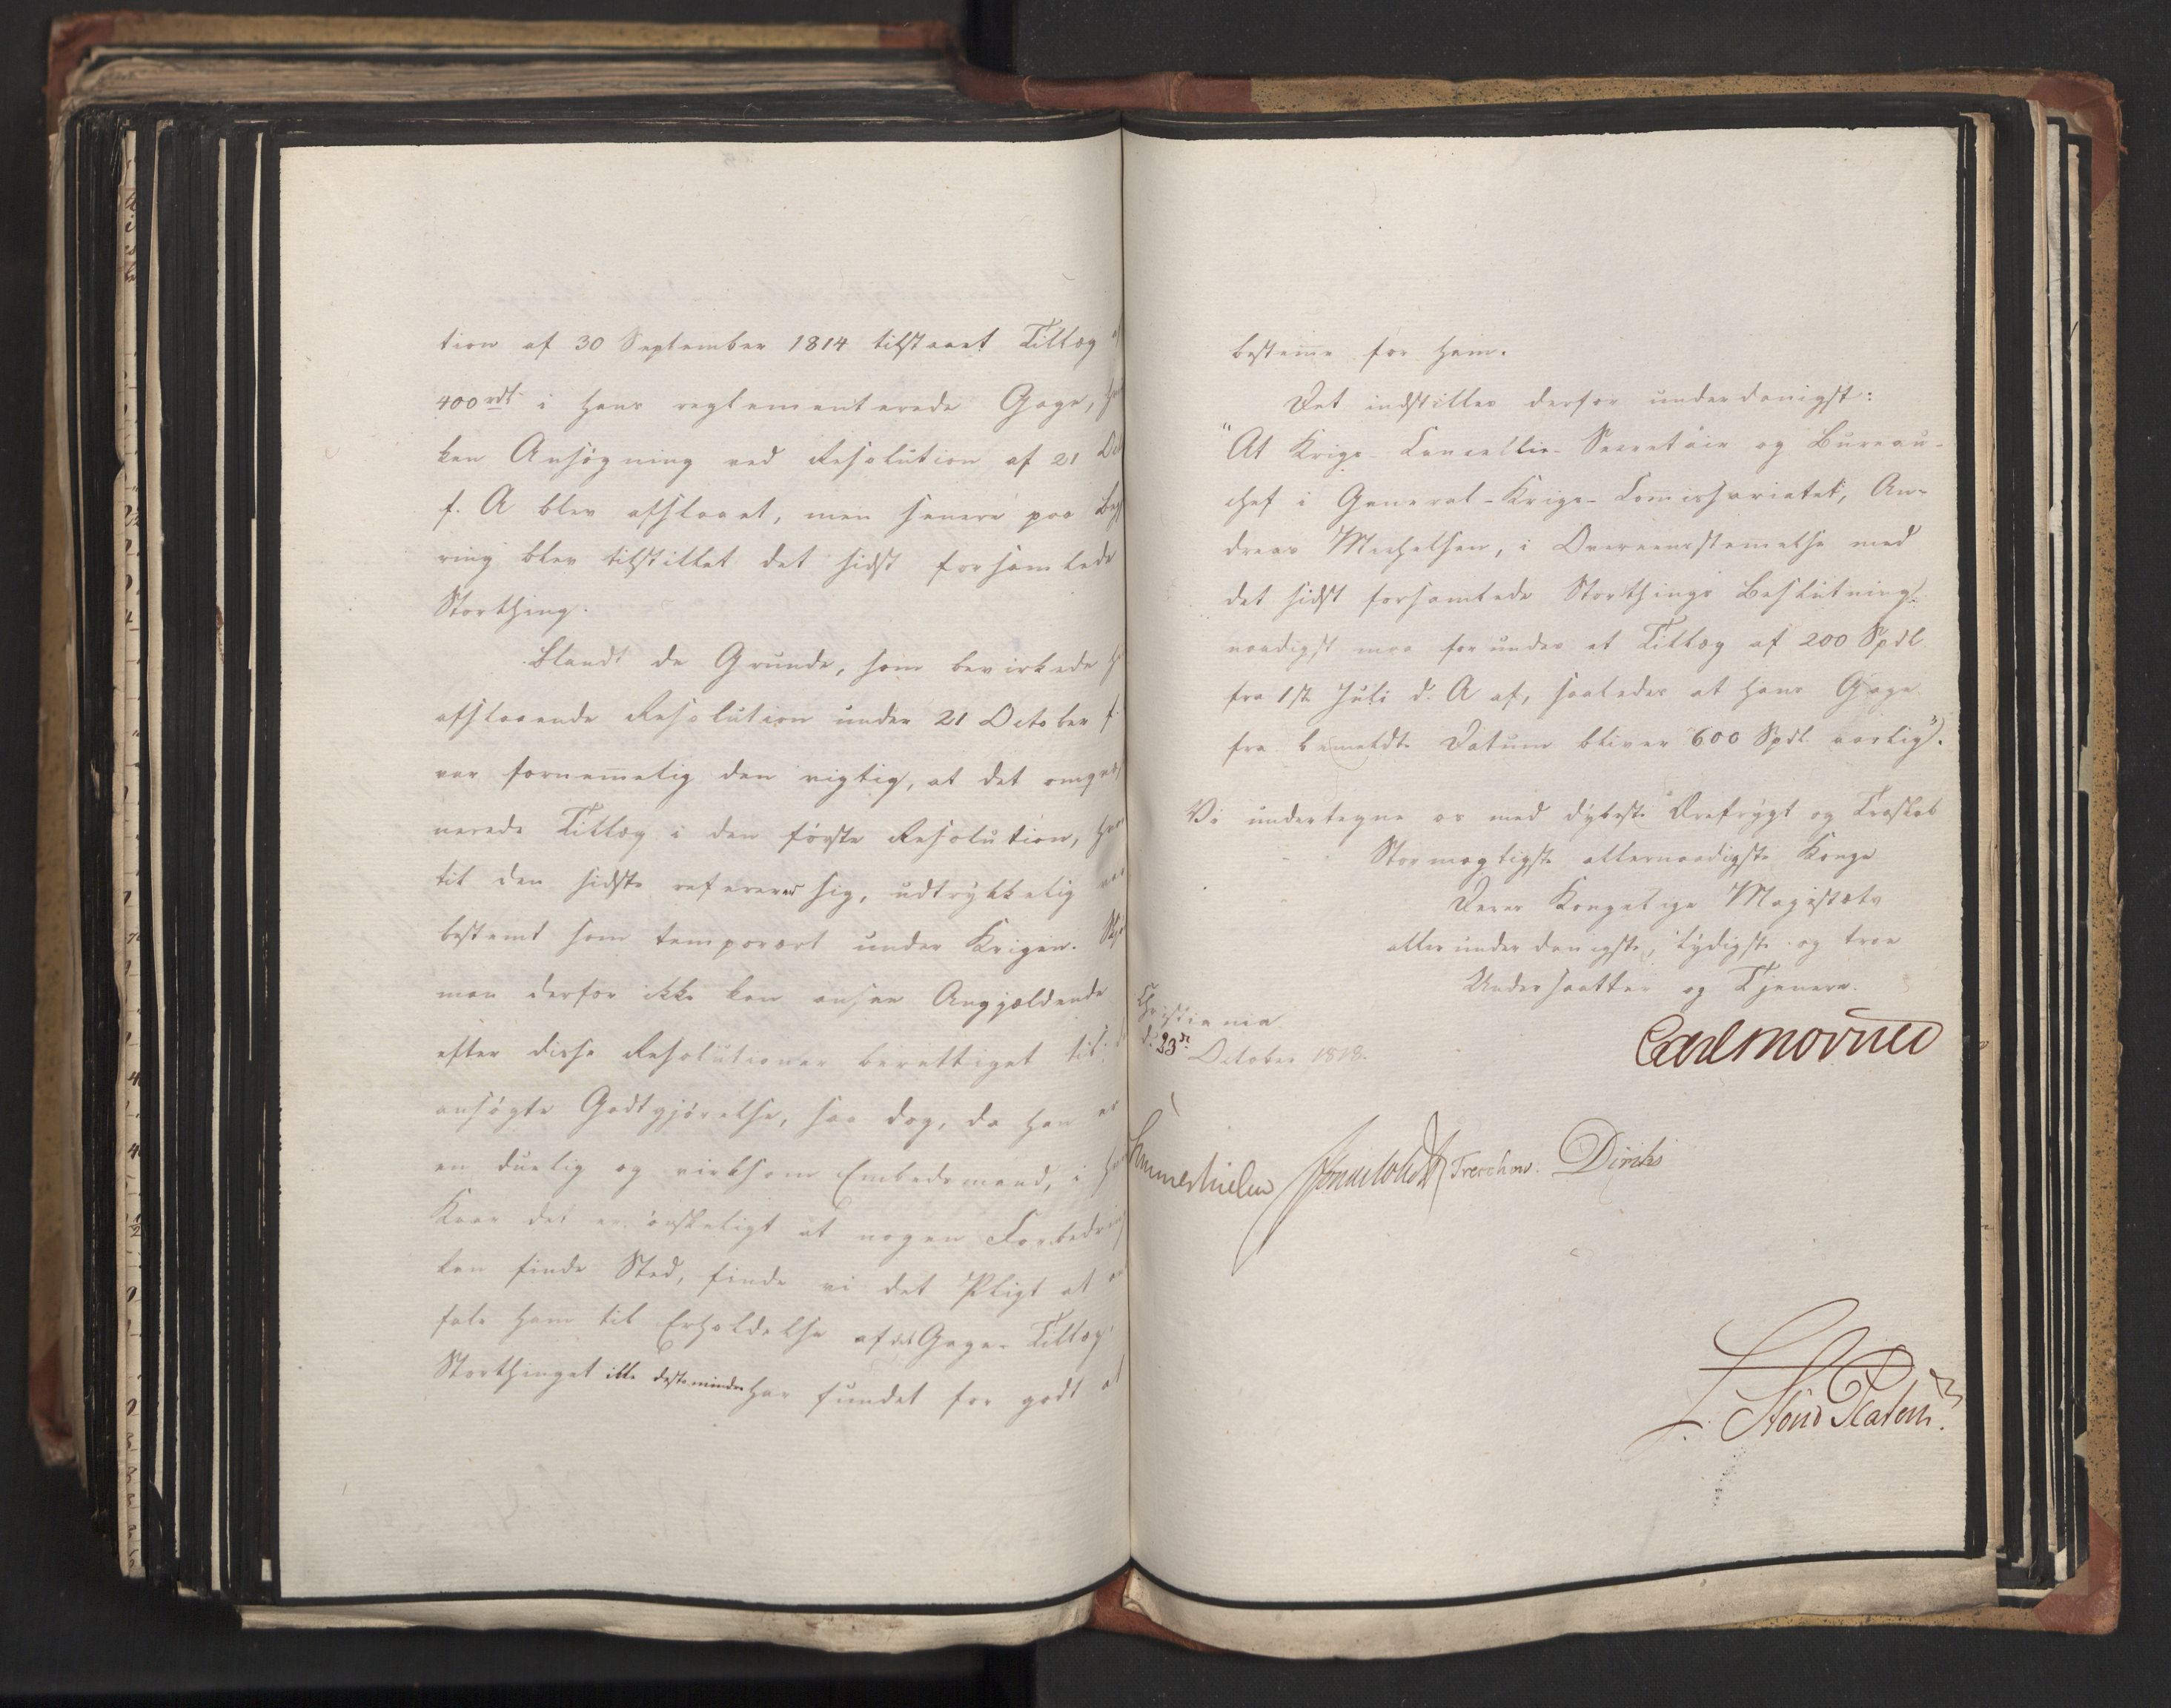 tion af 30 September 1814 tilstaaet Tillæg af
400 rdl i hans reglementerede Gage, hvil
ken Ansøgning ved Resolution af 21 Oct
f. A blev afslaaet, men senere paa Begj
ring blev tilstillet det sidst forsamlede
Storthing.
Blandt de Grunde, som bevirkede
afslaaende Resolution under 21 October f.
var fornemmelig den vigtig, at det omqvæs
nerede Tillæg i den første Resolution, hvor
til den sidste refererer sig, udtrykkelig var
bestemt som temporært under Krigen.
man derfor ikke kan ansee Angjældende
efter disse Resolutioner berettiget til
ansøgte Godtgjørelse, saa dog, da han er
en duelig og virksom Embedsmand, i hvis
Kaar det er ønskeligt at nogen Forbedring
kan finde Sted, finde vi det Pligt at an
fale ham til Erholdelse af det Gage-Tillæg
Storthinget ikke destomindre har fundet for godt at
bestemme for ham.
Det indstilles derfor underdanigst:
"At Krigs-Cancellie-Secretair og Bureau-
chef i General-Krigs-Commissariatet, An-
dreas Michelsen, i Overeensstemmelse med
det sidst forsamlede Storthings Beslutning
naadigst maa forundes et Tillæg af 200 Spdl
fra 1st Juli d. A af, saaledes at hans Gage
fra bemeldte Datum bliver 600 Spdl aarlig".
Vi undertegne os med dybeste Ærefrygt og Troskab
Stormægtigste allernaadigste Konge
Deres Kongelige Majestæts
allerunderdanigste, lydigste og troe
Undersaatter og Tjenere.
Christiania
d. 23de October 1818.
Carl Mörner
Sommerhielm Treschow. Diriks